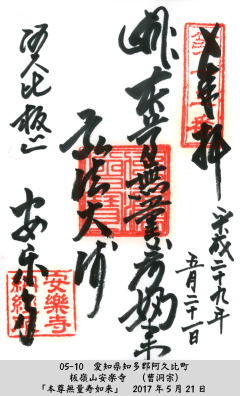 奉拝
平成二十九年
五月二十一日
本尊無量寿如来
弘法大师
阿久比板山
安楽寺
安樂寺
05-10 愛知県知多郡阿久比町
板嶺山安楽寺 (曹洞宗)
「本尊無量寿如来」 2017年5月21日